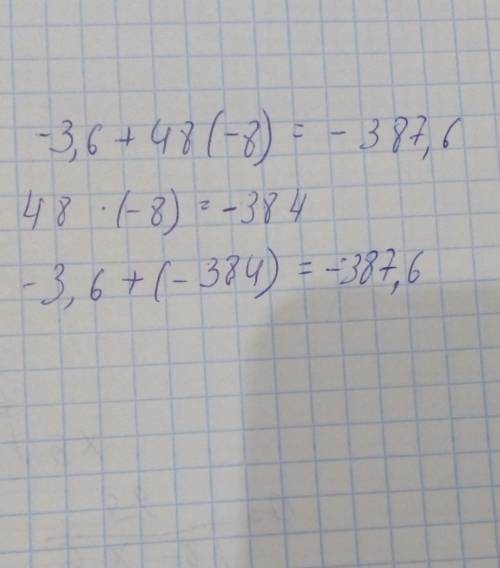 -3,6 + 48(-8) = - 387,6
48 · (-8) = -384
-3,6 + (- 384) = -387,6